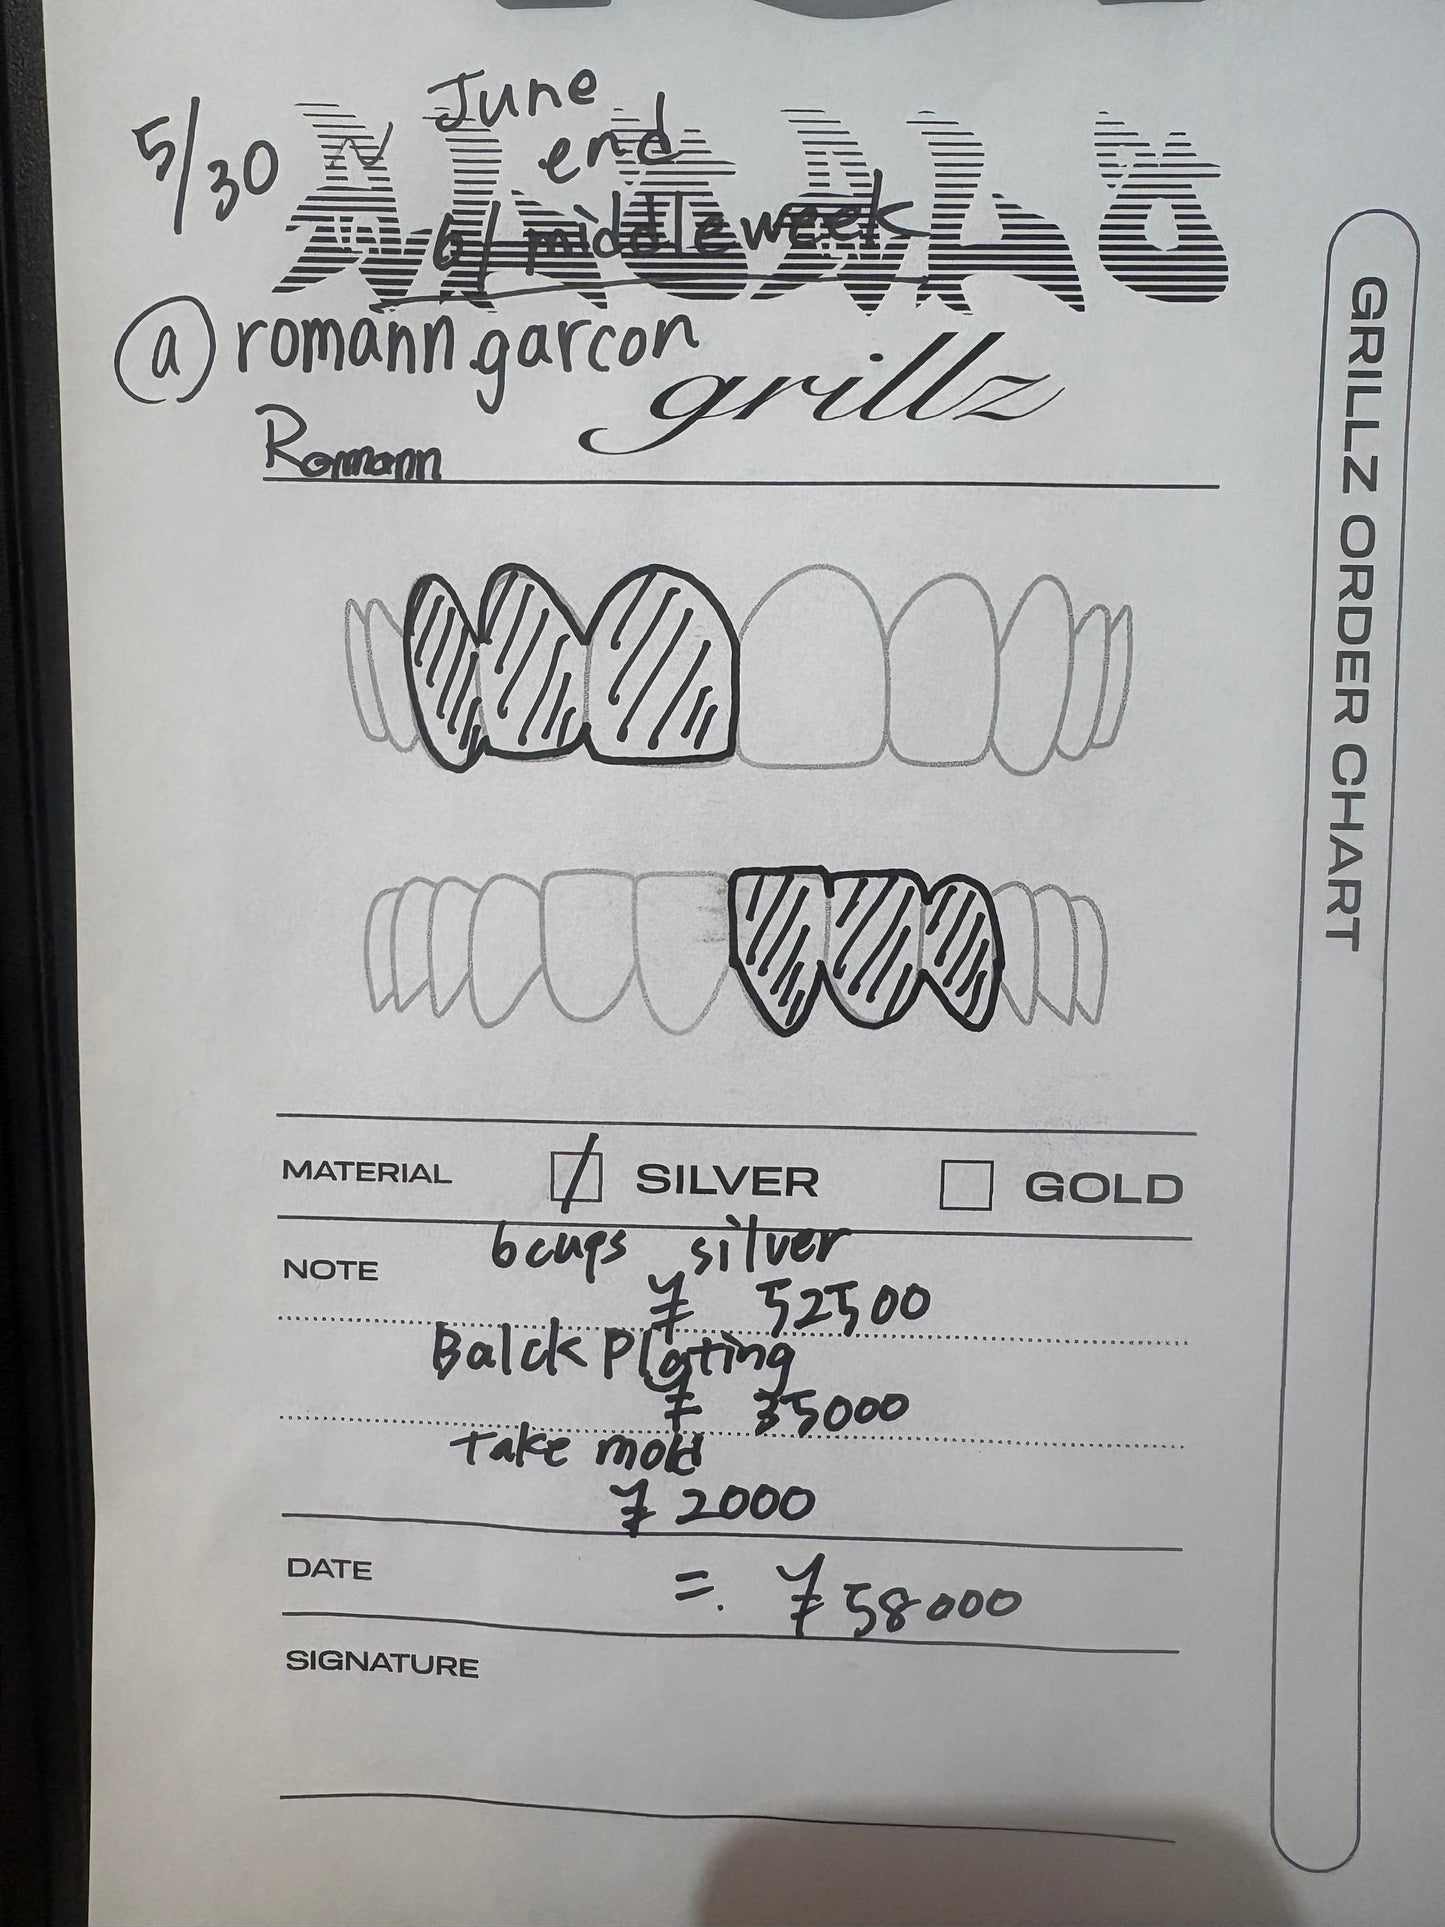 5/30 ~ June
end
6/ middle week
@ romann.garcon
grillz
Romann
GRILLZ ORDER CHART
MATERIAL SILVER GOLD
NOTE 6cups silver
¥ 52500
Balck Plating
¥ 35000
Take mold
¥ 2000
DATE = ¥ 58000
SIGNATURE